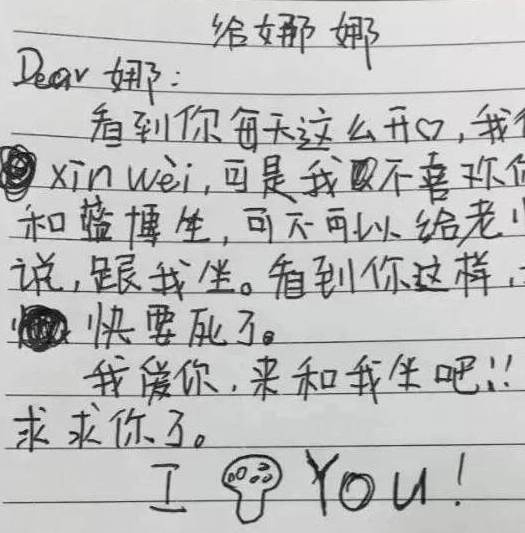 给娜娜
Dear 娜:
看到你每天这么开♡,我
xīn wèi,可是我不喜欢你
和蓝博生,可不可以给老
说,跟我坐。看到你这样,
快要死了。
我爱你,来和我坐吧!!
求求你了。
I You!